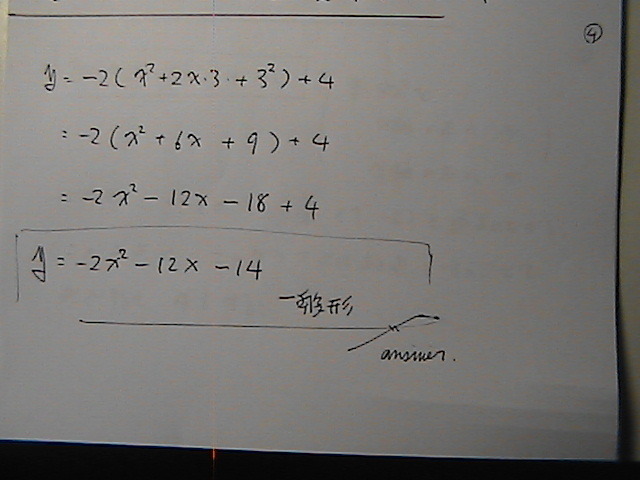 ④
y = -2(x²+2x·3·+3²)+4
= -2(x²+6x+9)+4
= -2x²-12x-18+4
y = -2x²-12x-14
一般形
answer.